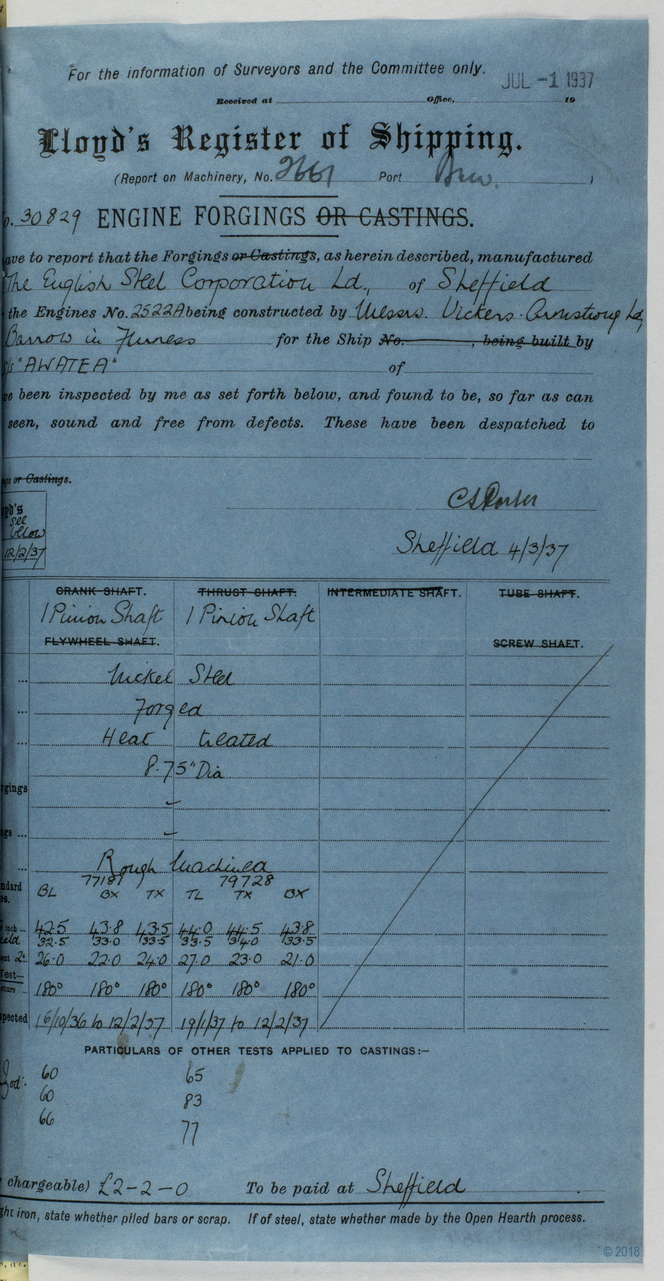 For the information of Surveyors and the Committee only.
JUL -1 1937
Received at Office, 19
Lloyd's Register of Shipping.
(Report on Machinery, No. 2661 Port Bw. )
o. 30829 ENGINE FORGINGS OR CASTINGS.
ave to report that the Forgings or Castings, as herein described, manufactured
The English Steel Corporation Ld., of Sheffield
the Engines No. 2522A being constructed by Messrs. Vickers-Armstrong Ld,
Barrow in Furness for the Ship No. , being built by
S/S "AWATEA" of
e been inspected by me as set forth below, and found to be, so far as can
seen, sound and free from defects. These have been despatched to
ngs or Castings.
oyd's
see
below
12/2/37
Sheffield 4/3/37
CRANK SHAFT. THRUST SHAFT. INTERMEDIATE SHAFT. TUBE SHAFT.
1 Pinion Shaft 1 Pinion Shaft
FLYWHEEL SHAFT. SCREW SHAFT.
... Nickel Steel
... Forged
... Heat treated
8.75" Dia
rgings –
gs ... –
... Rough Machined
ndard 77181 79728
es. BL BX TX TL TX BX
inch 42.5 43.8 43.5 44.0 44.5 43.8
ield 32.5 33.0 33.5 33.5 34.0 33.5
ent 2" 26.0 22.0 24.0 27.0 23.0 21.0
Test—
cture 180° 180° 180° 180° 180° 180°
spected 16/10/36 to 12/2/37 19/1/37 to 12/2/37
PARTICULARS OF OTHER TESTS APPLIED TO CASTINGS:—
60 65
Izod: 60 83
66 77
chargeable) £2-2-0 To be paid at Sheffield
ght iron, state whether piled bars or scrap. If of steel, state whether made by the Open Hearth process.
© 2018